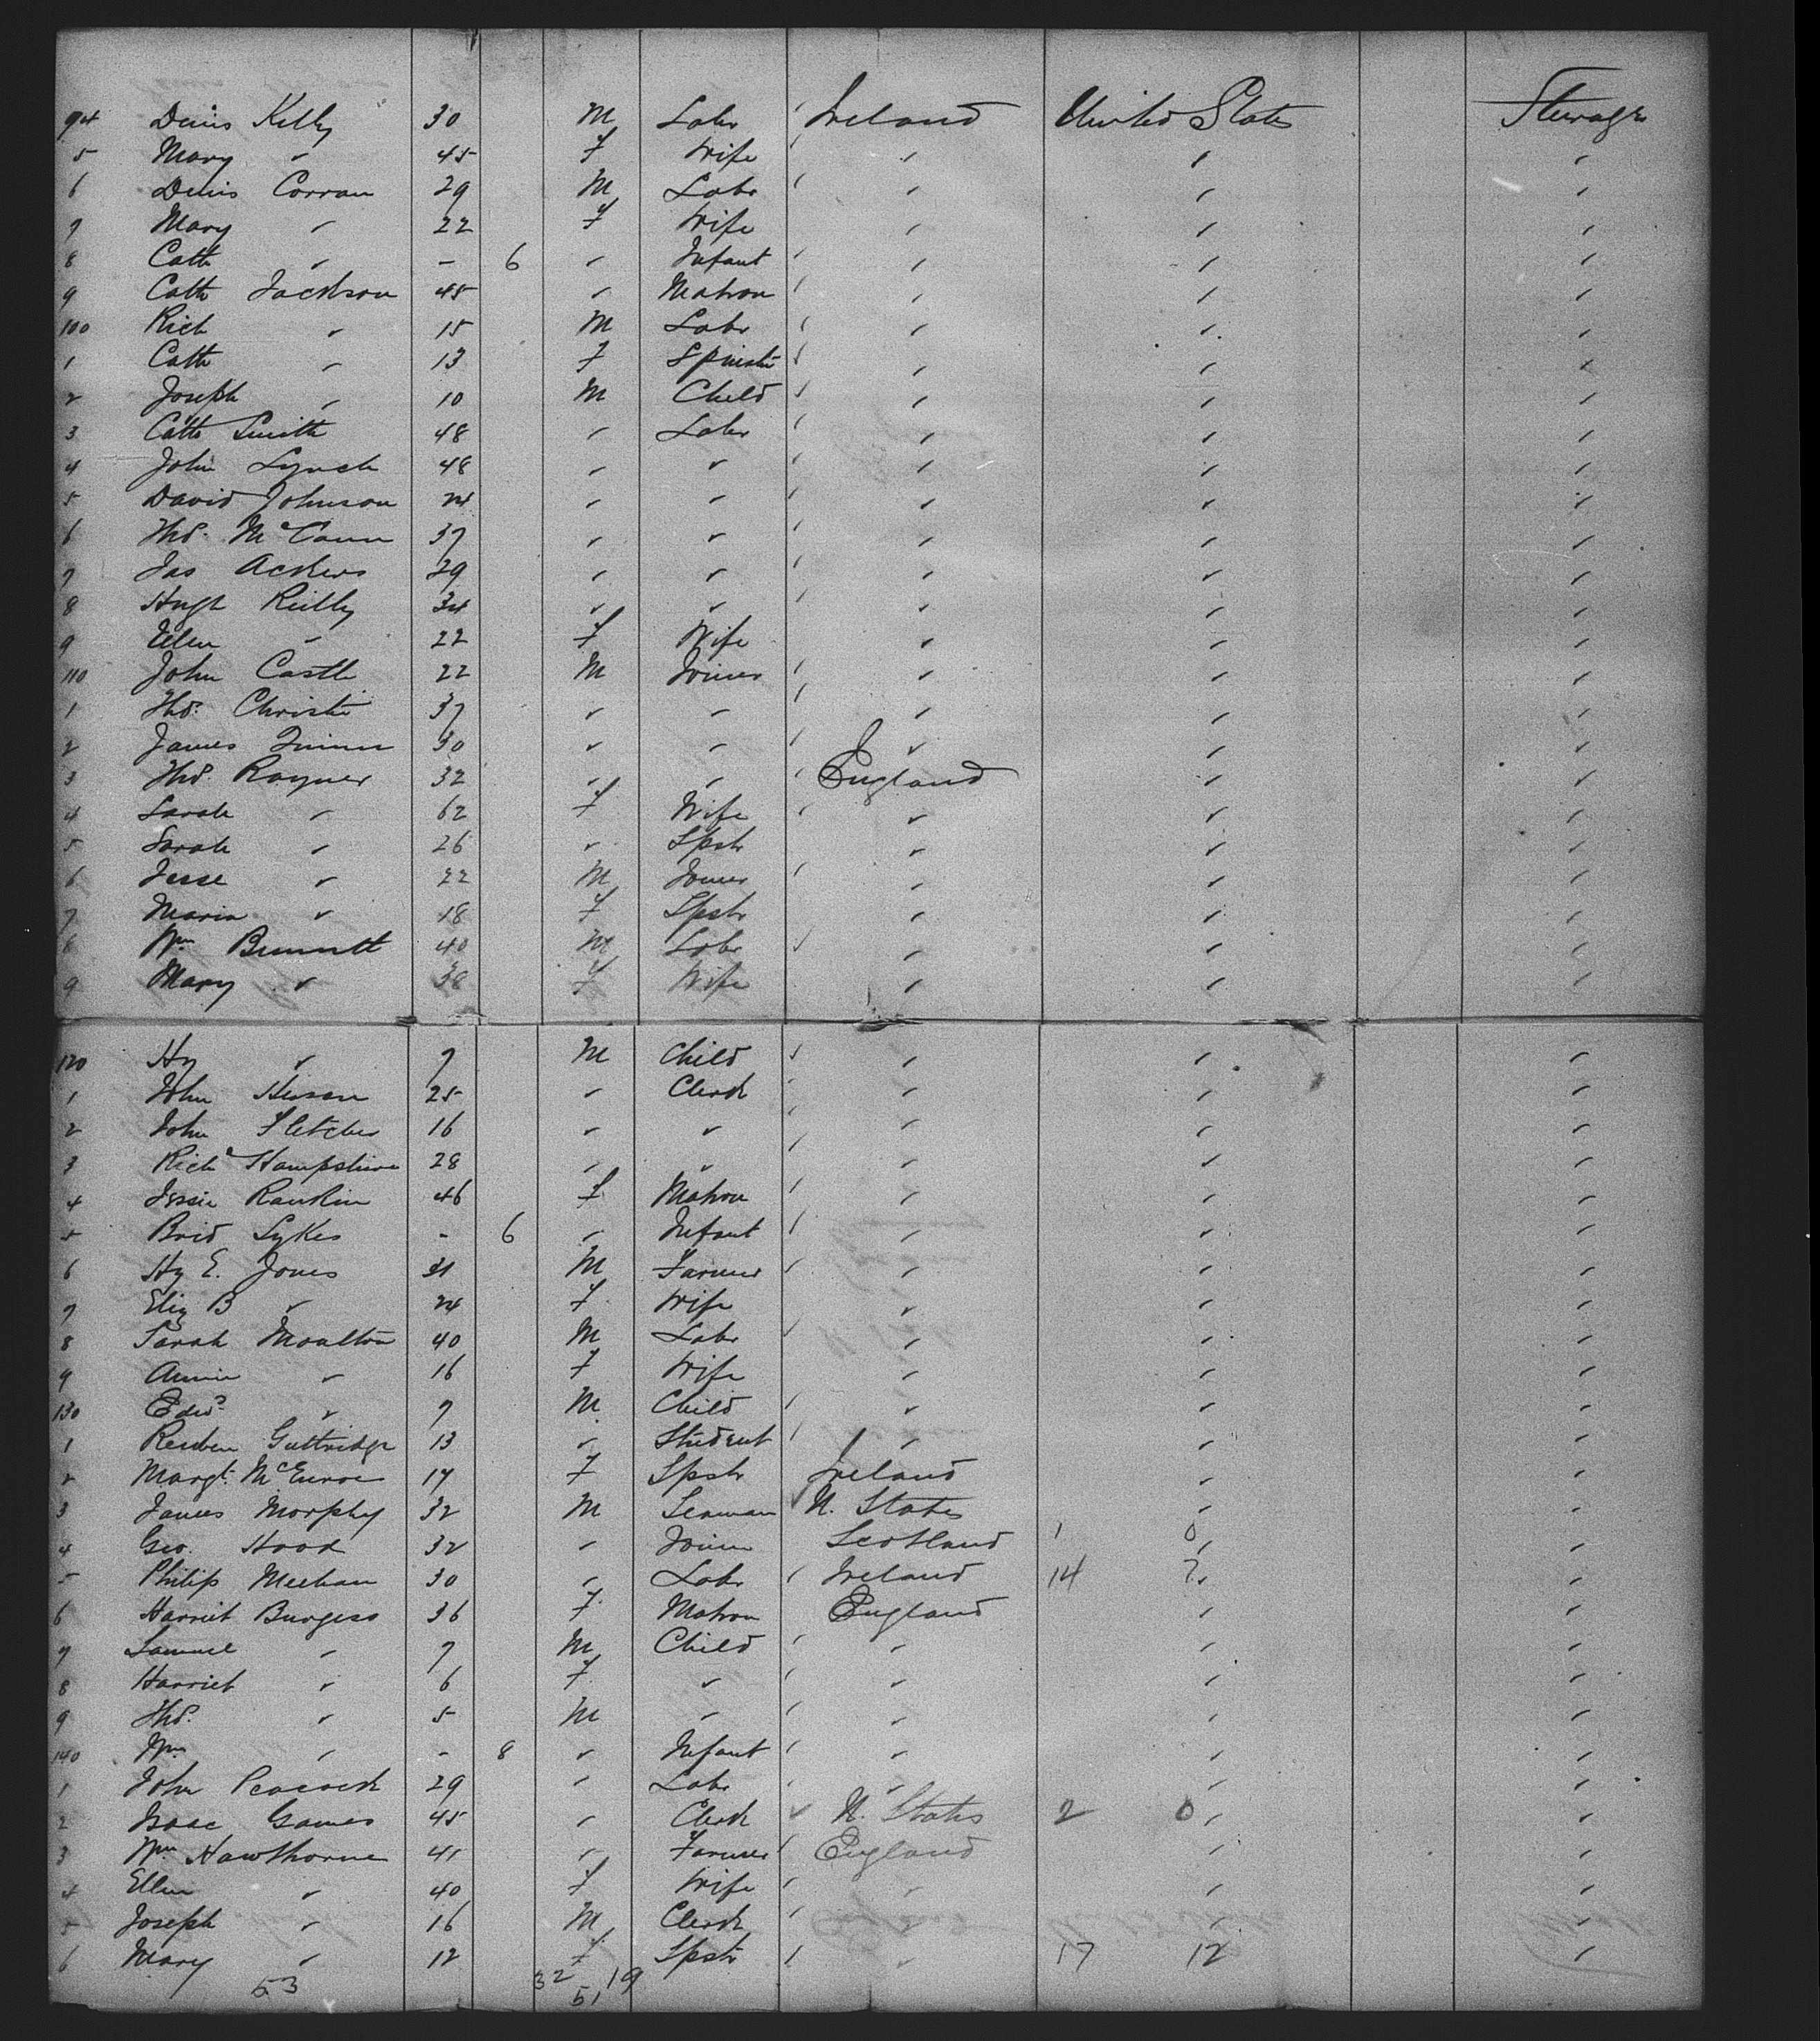 94 Denis Kelly 30 M Labr Ireland United States Steerage
5 Mary " 45 F Wife " " "
6 Denis Corran 29 M Labr " " "
7 Mary " 22 F Wife " " "
8 Cath " - 6 " Infant " " "
9 Cath Jackson 45 " Matron " " "
100 Rich " 15 M Labr " " "
1 Cath " 13 F Spinster " " "
2 Joseph " 10 M Child " " "
3 Cath Smith 48 " Labr " " "
4 John Lynch 48 " " " " "
5 David Johnson 24 " " " " "
6 Thos. McCann 37 " " " " "
7 Jas Ackers 29 " " " " "
8 Hugh Reilly 34 " " " " "
9 Ellen " 22 F Wife " " "
110 John Castle 22 M Joiner " " "
1 Thos. Christie 37 " " " " "
2 James Quinn 30 " " " " "
3 Thos. Rayner 32 " " England " "
4 Sarah " 62 F Wife " " "
5 Sarah " 26 " Spstr " " "
6 Jesse " 22 M Joiner " " "
7 Maria " 18 F Spstr " " "
8 Wm Bennett 40 M Labr " " "
9 Mary " 38 F Wife " " "
120 Hy " 7 M Child " " "
1 John 25 " Clerk " " "
2 John Fletcher 16 " " " " "
3 Richd Hampshire 28 " " " " "
4 Jessie Rankin 46 F Matron " " "
5 Brid Sykes - 6 " Infant " " "
6 Hy E. Jones 31 M Farmer " " "
7 Eliz B " 24 F Wife " " "
8 Sarah Moulton 40 M Labr " " "
9 Annie " 16 F Wife " " "
130 Edwd " 7 M Child " " "
1 Reuben Guttridge 13 " Student " " "
2 Margt. McEnroe 17 F Spstr Ireland " "
3 James Morphy 32 M Seaman U. States " "
4 Geo. Hood 32 " Joiner Scotland 1 0 " "
5 Philip Meehan 30 " Labr Ireland 14 7 " "
6 Harriet Burgess 36 F Matron England " "
7 Samuel " 7 M Child " " "
8 Harriet " 6 F " " " "
9 Thos. " 5 M " " " "
140 Wm " - 8 " Infant " " "
1 John Peacock 29 " Labr " " "
2 Isaac Games 45 " Clerk U. States 2 0 " "
3 Wm Hawthorne 41 " Farmer England " "
4 Ellen " 40 F Wife " " "
5 Joseph " 16 M Clerk " " "
6 Mary " 12 F Spstr " 17 12 "
53 32 19
51